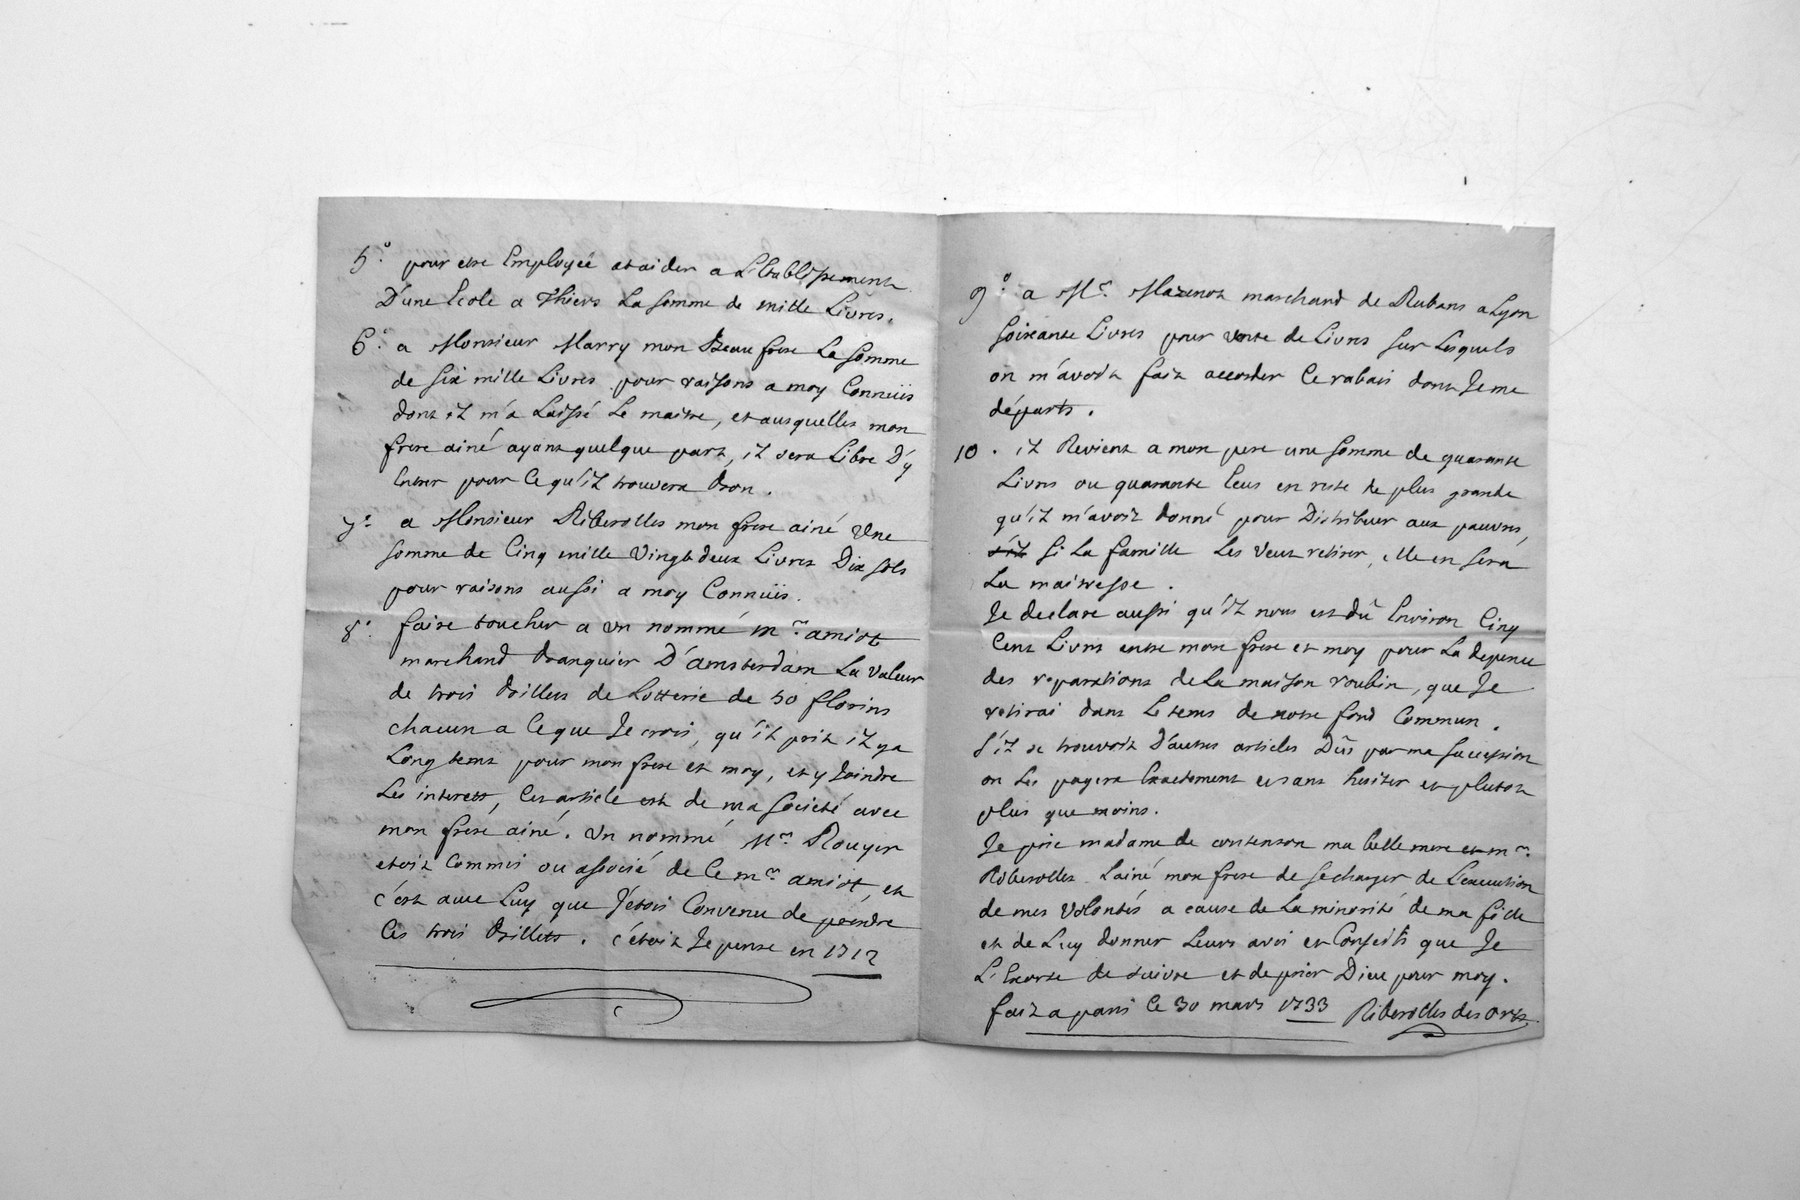 5.° pour etre Employéé et aider a L'Etablissement
D'une Ecole a Thiers La somme de mille Livres.
6.° a Monsieur Marry mon Beau frere La somme
de six mille Livres pour raisons a moy Connuiis
dont il m'a Laissé Le maitre, et ausquelles mon
frere ainé ayant quelque part, il sera Libre D'y
Entrer pour Ce qu'il trouvera bon.
7.° a Monsieur Riberolles mon frere ainé Une
somme de Cinq mille Vingt deux Livres Dix sols
pour raisons aussi a moy Connuiis.
8.° faire toucher a un nommé mr. amiot
marchand banquier D'amsterdam La Valeur
de trois billets de Lotterie de 50 florins
chacun a Ce que Je crois, qu'il prit il y a
Long tems pour mon frere et moy, et y Joindre
Les interets, Cet article est de ma société avec
mon frere ainé. Un nommé Mr. Rouyer
etoit Commis ou associé de Ce mr. amiot, et
c'est avec Luy que J'étois Convenu de prendre
Ces trois billets. c'étoit Je pense en 1712
9.° a Mr. Mazenot marchand de Rubans a Lyon
soixante Livres pour vente de Livres sur Lesquels
on m'avoit fait accorder Ce rabais dont Je me
départs.
10. il Revient a mon pere une somme de quarante
Livres ou quarante Ecus en reste de plus grande
qu'il m'avoit donné pour Distribuer aux pauvres,
s'il si La famille Les Veut retirer, elle en sera
La maitresse.
Je declare aussi qu'il nous est dû Environ Cinq
Cent Livres entre mon frere et moy pour La depense
des reparations de La maison roubin, que Je
retirai dans Le tems de notre fond Commun.
s'il se trouvoit D'autres articles Dûs par ma succession
on Les payera Exactement et sans hesiter et plutot
plus que moins.
Je prie madame de contenson ma belle mere et mr.
Riberolles L'ainé mon frere de se charger de L'execution
de mes Volontés a cause de La minorité de ma fille
et de Luy donner Leurs avis et Conseils que Je
L'Exorte de suivre et de prier Dieu pour moy.
fait a paris Ce 30 mars 1733 Riberolles des Orts